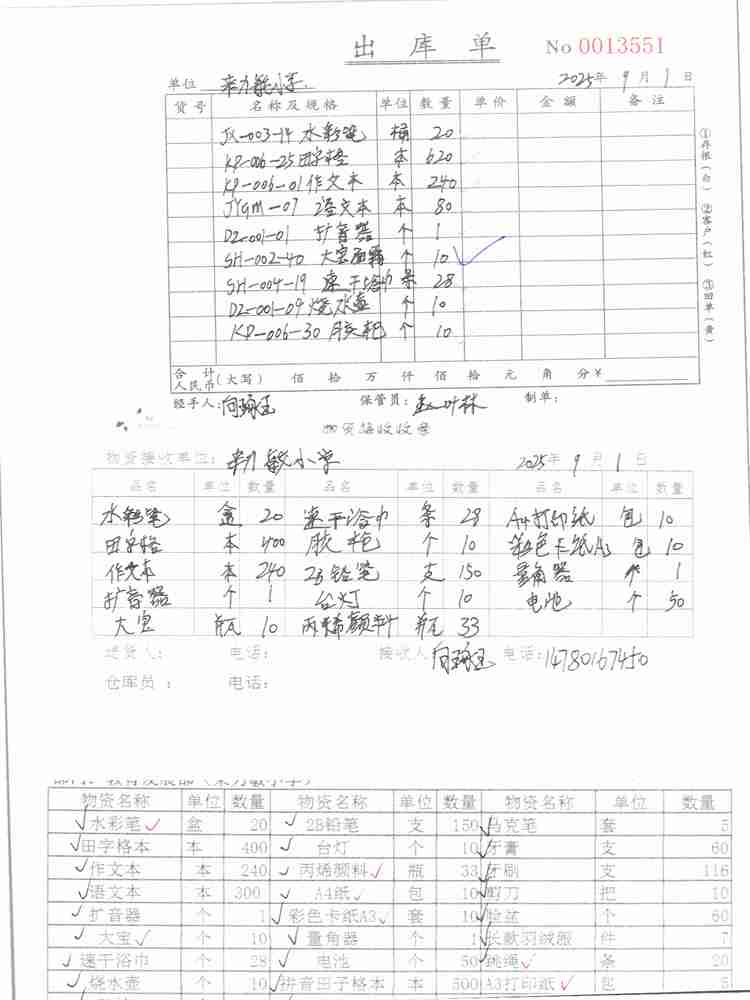 出 库 单 No 0013551
单位 来力敏小学. 2025年 9月 1日
货号 名称及规格 单位 数量 单价 金额 备注
JX-003-14 水彩笔 桶 20
KP-006-25 田字格 本 620
KP-006-01 作文本 本 240
JYGM-07 语文本 本 80
DZ-001-01 扩音器 个 1
SH-002-40 大宝面霜 个 10
SH-004-19 速干浴巾 条 28
DZ-001-09 烧水壶 个 10
KP-006-30 胶枪 个 10
①存根(白) ②客户(红) ③回单(黄)
合计人民币(大写) 佰 拾 万 仟 佰 拾 元 角 分 ¥
经手人: 保管员: 制单:
物资接收收单
物资接收单位: 来力敏小学 2025年 9月 1日
品名 单位 数量 品名 单位 数量 品名 单位 数量
水彩笔 盒 20 速干浴巾 条 28 A4打印纸 包 10
田字格 本 400 胶枪 个 10 彩色卡纸A3 包 10
作文本 本 240 2B铅笔 支 150 量角器 个 1
扩音器 个 1 台灯 个 10 电池 个 50
大宝 瓶 10 丙烯颜料 瓶 33
送货人: 电话: 接收人 电话:14780167450
仓库员: 电话:
物资名称 单位 数量 物资名称 单位 数量 物资名称 单位 数量
水彩笔 盒 20 2B铅笔 支 150 马克笔 套 5
田字格本 本 400 台灯 个 10 牙膏 支 60
作文本 本 240 丙烯颜料 瓶 33 牙刷 支 116
语文本 本 300 A4纸 包 10 剪刀 把 10
扩音器 个 1 彩色卡纸A3 套 10 脸盆 个 60
大宝 个 10 量角器 个 1 长款羽绒服 件 7
速干浴巾 个 28 电池 个 50 跳绳 条 20
烧水壶 个 10 拼音田子格本 本 500 A3打印纸 包 5